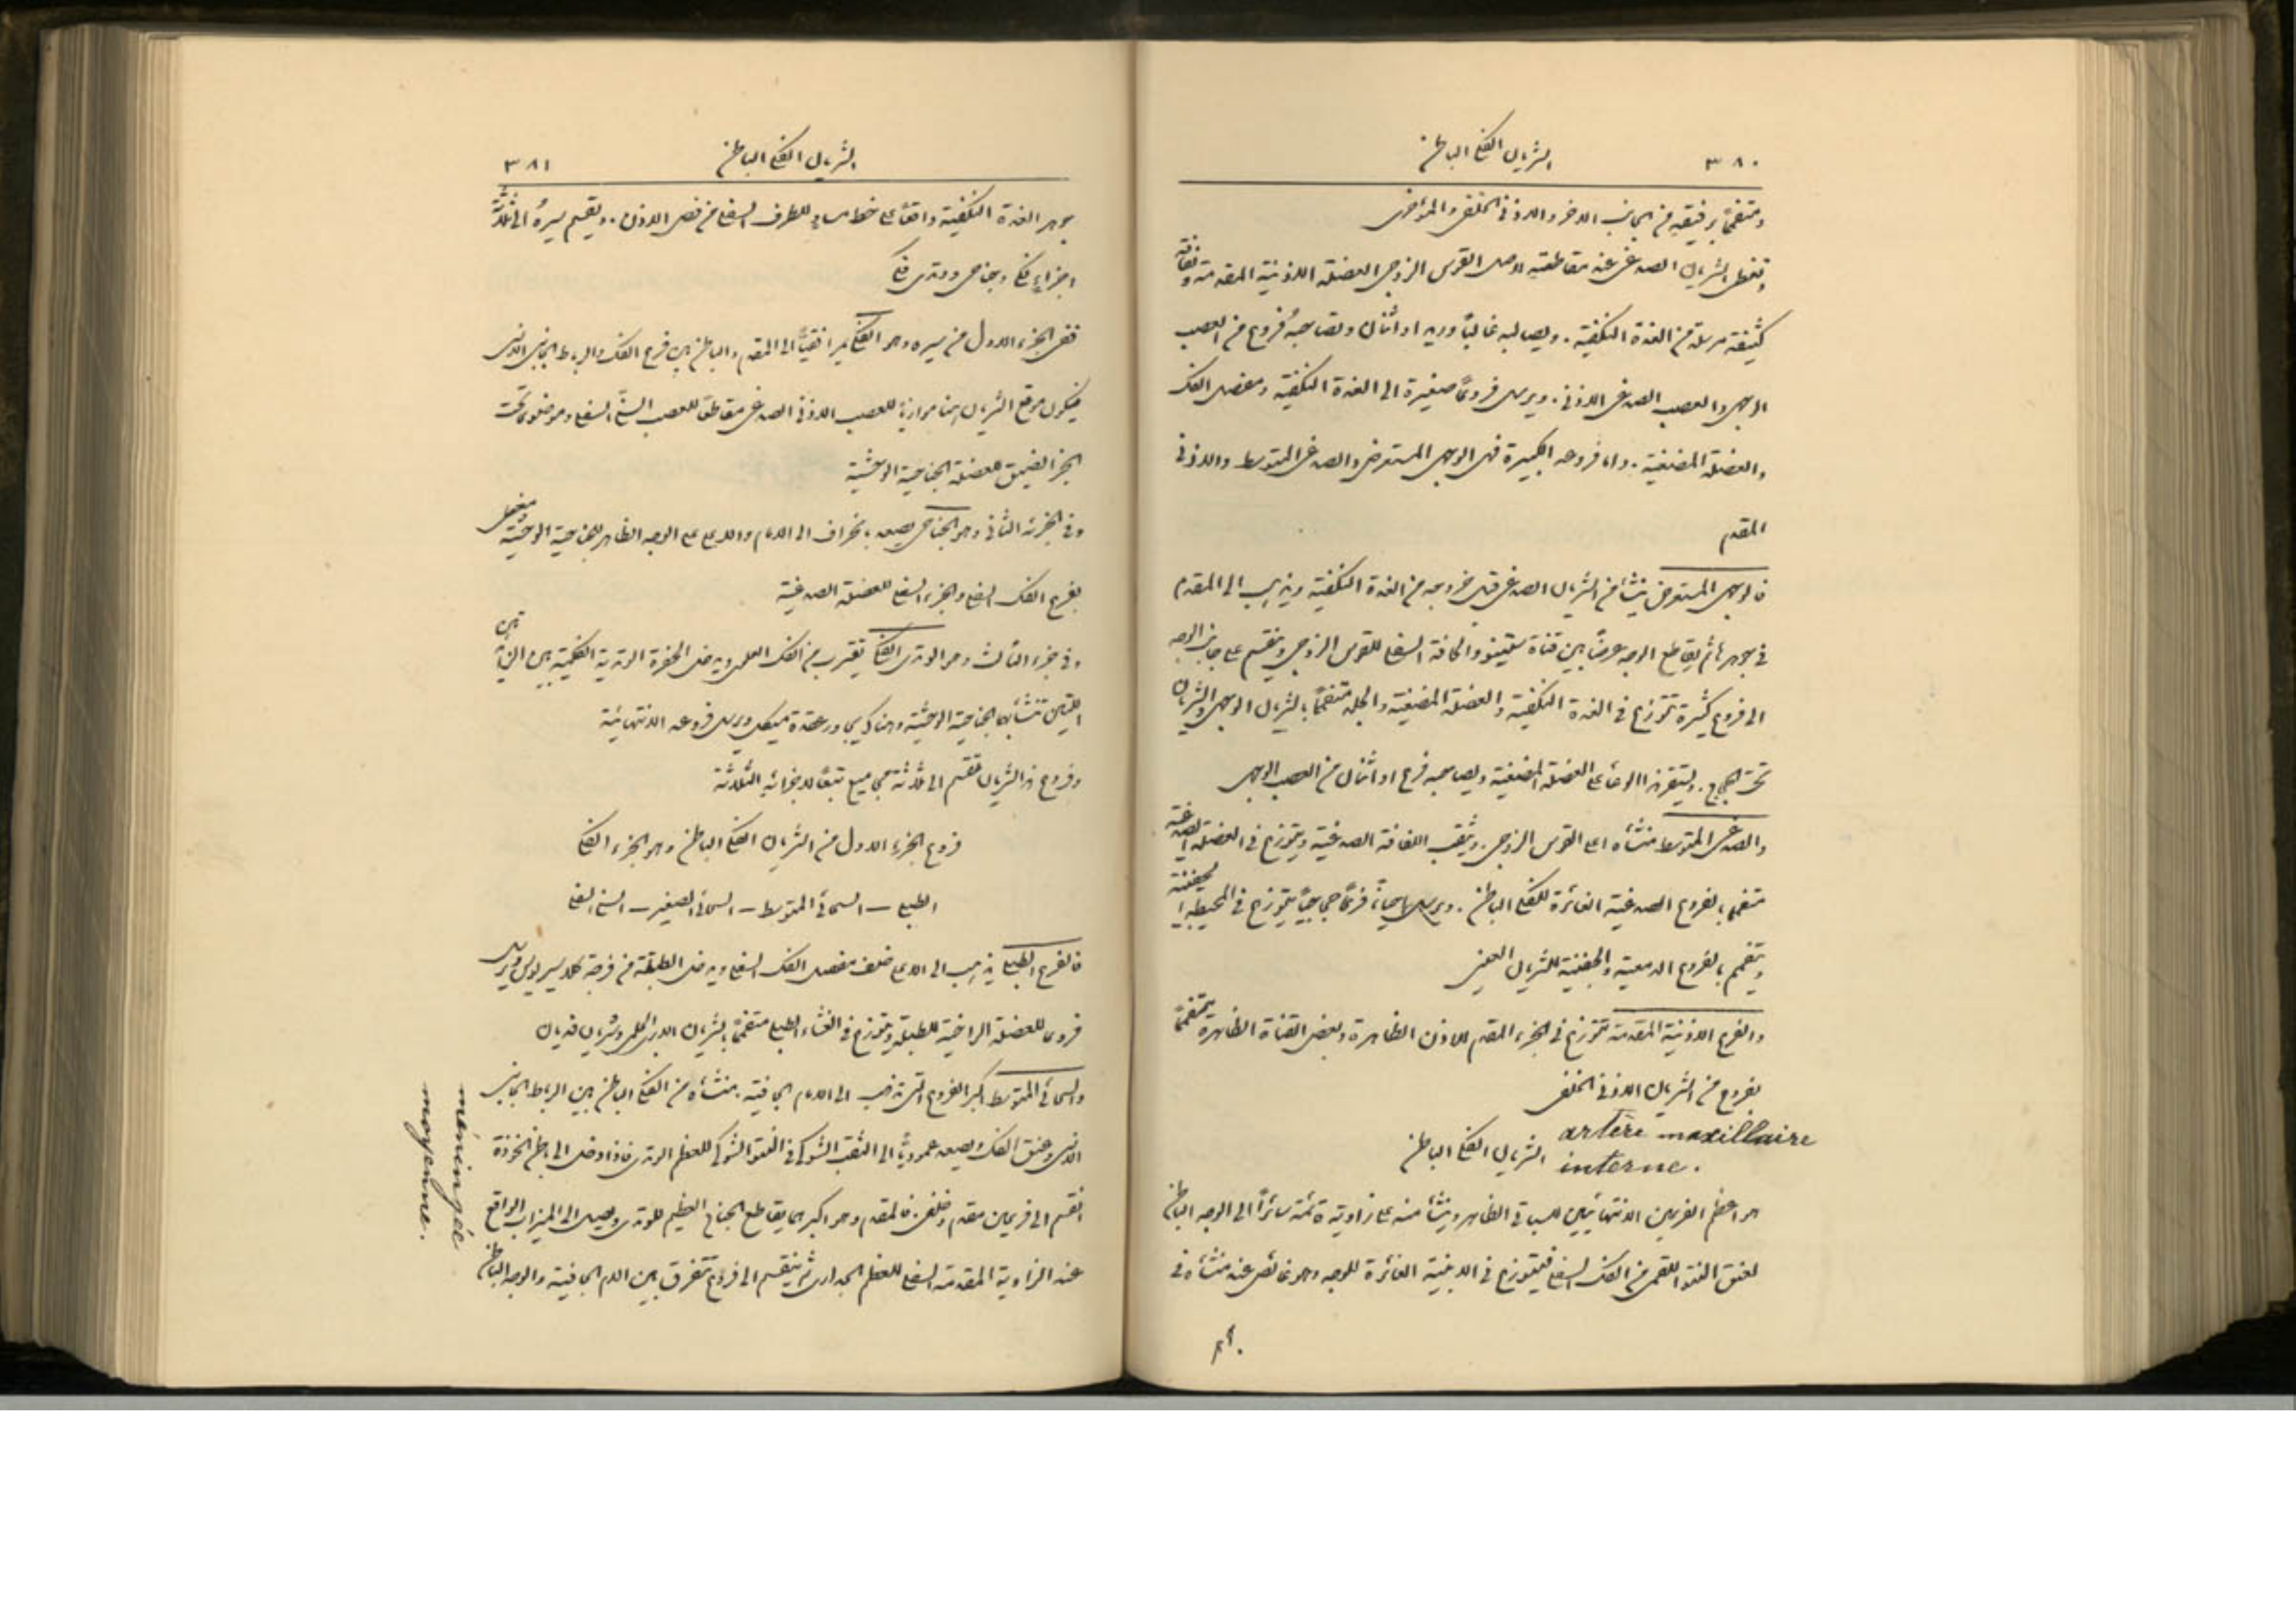 ٣٨٠
الشريان الفكي الباطن
ومتفممًا برفيقيه من الجانب الاخر والاذني الخلفي والمؤخري
وتغطي الشريان الصدغي عند مقاطعته لاصل القوس الزوجي العضلة الاذنية المقدمة ولفافة
كثيفة مرسلة من الغدة النكفية. ويصالبه غالبًا وريد او اثنان وتصاحبه فروع من العصب
الوجهي والعصب الصدغي الاذني. ويرسل فروعًا صغيرة الى الغدة النكفية ومفصل الفك
والعضلة المضغية. واما فروعه الكبيرة فهي الوجهي المستعرض والصدغي المتوسط والاذني
المقدم
فالوجهي المستعرض ينشأ من الشريان الصدغي قبل خروجه من الغدة النكفية ويذهب الى المقدم
في جوهرها ثم يقاطع الوجه عرضًا بين قناة ستينو والحافة السفلى للقوس الزوجي وينقسم على جانب الوجه
الى فروع كثيرة تتوزع في الغدة النكفية والعضلة المضغية والجلد متفممًا بالشريان الوجهي والشريان
تحت الحجاج. ويستقر هذا الوعاء على العضلة المضغية ويصاحبه فرع او اثنان من العصب الوجهي
والصدغي المتوسط منشأه اعلى القوس الزوجي. ويثقب اللفافة الصدغية ويتوزع في العضلة الصدغية
متفمم بالفروع الصدغية الغائرة للفكي الباطن. ويرسل احيانًا فرعًا حجاجيًا يتوزع في المحيطة الجفنية
ويتفمم بالفروع الدمعية والجفنية للشريان العيني
والفروع الاذنية المقدمة تتوزع في الجزء المقدم للاذن الظاهرة وبعض القناة الظاهرة متفممًا
بفروع من الشريان الاذني الخلفي
الشريان الفكي الباطن artère maxillaire
interne.
هو اعظم الفرعين الانتهائيين للسباتي الظاهر وينشأ منه على زاوية قائمة سائرًا الى الوجه الباطن
لعنق النتو اللقمي من الفك السفلي فيتوزع في الابنية الغائرة للوجه وهو غائص عند منشأه في
٣٨١
الشريان الفكي الباطن
جوهر الغدة النكفية واقعًا على خط مساوٍ للطرف السفلي من فص الاذن. ويقسم سيره الى ثلاثة
اجزاء فكي وجناحي ووتدي فكي
ففي الجزء الاول من سيره وهو الفكي يمر افقيًا الى المقدم والباطن بين فرع الفك والرباط الجانبي الانسي
فيكون موقع الشريان هنا موازيًا للعصب الاذني الصدغي مقاطعًا للعصب السني السفلي وموضوعًا تحت
الجزء الضيق للعضلة الجناحية الوحشية
وفي الجزئه الثاني وهو الجناحي يصعد بانحراف الى الامام والاعلى على الوجه الظاهر للجناحية الوحشية ومغطى
بفرع الفك السفلي والجزء السفلي للعضلة الصدغية
وفي جزءه الثالث وهو الوتدي الفكي يقترب من الفك العلوي ويدخل الحفرة الوتدية الفكية بين
اللتين تنشأ بهما الجناحية الوحشية وهناك يجاور عقدة ميكل ويرسل فروعه الانتهائية
وفروع هذا الشريان تقسم الى ثلاثة مجاميع تبعًا لاجزائه الثلاثة
فروع الجزء الاول من الشريان الفكي الباطن وهو الجزء الفكي
الطبلي – السحائي المتوسط – السحائي الصغير – السني السفلي
فالفرع الطبلي يذهب الى الاعلى خلف مفصل الفك السفلي ويدخل الطبلة من فرجة كلاسير ويرسل
فروعًا للعضلة الراخية للطبلة ويتوزع في الغشاء الطبلي متفممًا بالشريان الابري الحلمي وشريان فديان
والسحائي المتوسط اكبر الفروع التي تذهب الى الام الجافية. منشأه من الفكي الباطن بين الرباط الجانبي
الانسي وعنق الفك ويصعد عموديًا الى الثقب الشوكي في النتو الشوكي للعظم الوتدي فاذا دخل الى باطن الخوذة
انقسم الى فرعين مقدم وخلفي. فالمقدم وهو اكبرهما يقاطع الجناح العظيم للوتدي ويصل الى الميزاب الواقع
عند الزاوية المقدمة السفلى للعظم الجداري ثم ينقسم الى فروع تتفرق بين الام الجافية والوجه الباطن
méningée
moyenne.